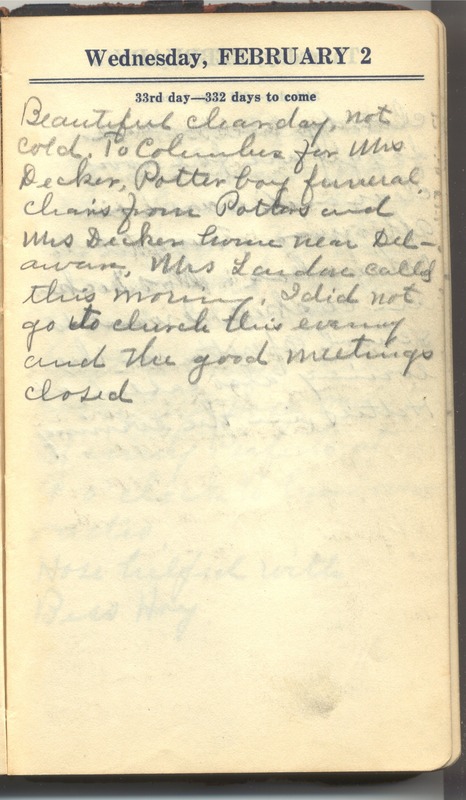 Wednesday, FEBRUARY 2
33rd day—332 days to come
Beautiful clear day, not
cold. To Columbus for Mrs
Decker, Potter boy funeral,
chairs from Potters and
Mrs Decker home near Del-
aware, Mrs Landon called
this morning. I did not
go to church this evening
and the good meetings
closed